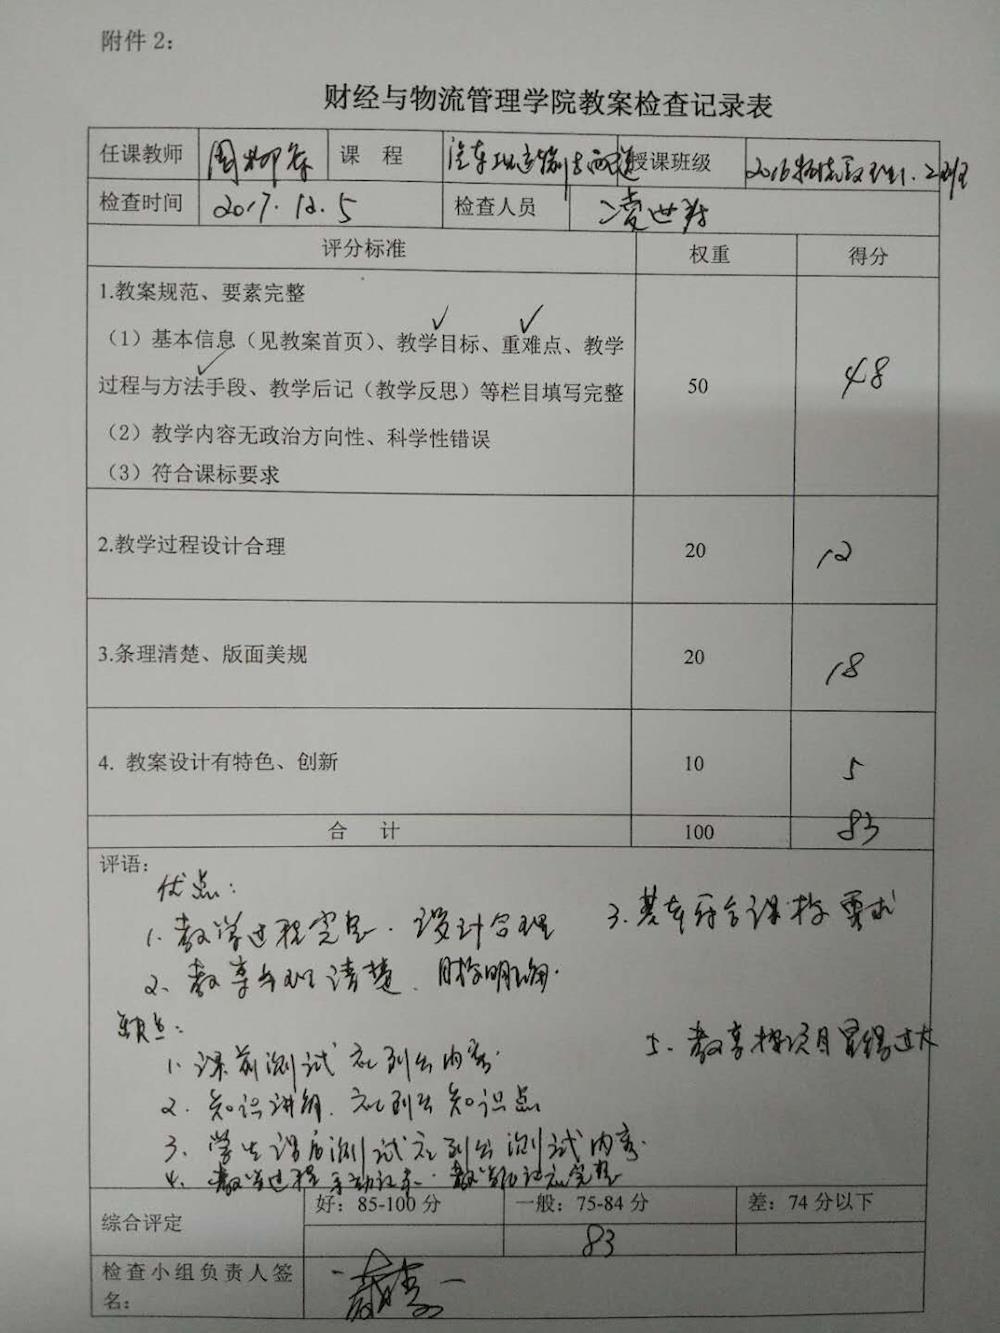 附件 2：
财经与物流管理学院教案检查记录表
任课教师 周 课 程 汽车 授课班级 2016物流管理1、2班
检查时间 2017.12.5 检查人员 凌世
评分标准 权重 得分
1.教案规范、要素完整
（1）基本信息（见教案首页）、教学目标、重难点、教学
过程与方法手段、教学后记（教学反思）等栏目填写完整 50 48
（2）教学内容无政治方向性、科学性错误
（3）符合课标要求
2.教学过程设计合理 20 12
3.条理清楚、版面美规 20 18
4. 教案设计有特色、创新 10 5
合 计 100 83
评语：
优点：
1. 教学过程完整. 设计合理 3. 基本符合课标要求
2、 清楚、目标明确.
缺点：
1. 课前测试 应列出内容. 5.
2. 知识讲解、应列出知识点
3. 学生课后测试应列出测试内容.
4. 教学过程
综合评定 好：85-100 分 一般：75-84 分 差：74 分以下
83
检查小组负责人签
名：